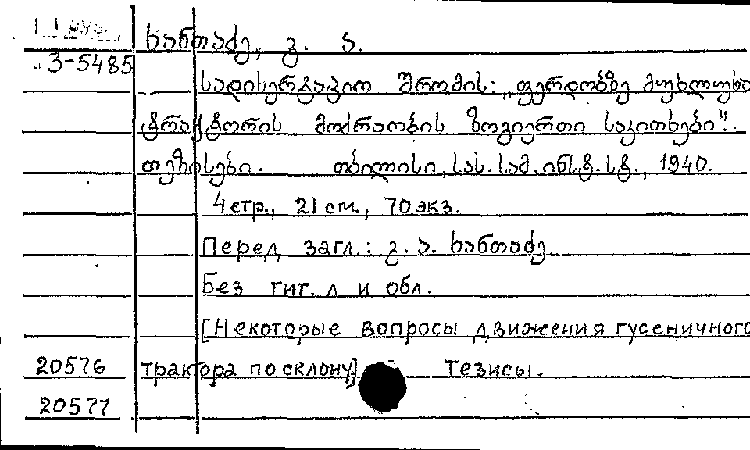 ხანთაძე, გ. ა.
3-5485
სადისერტაციო შრომის: „ფერდობზე მუხლუხა
ტრაქტორის მოძრაობის ზოგიერთი საკითხები".
თეზისები. თბილისი, სას. სამ. ინსტ. სტ., 1940.
4 стр., 21 см., 70 экз.
Перед загл.: გ. ა. ხანთაძე
Без тит. л и обл.
[Некоторые вопросы движения гусеничного
20576 трактора по склону] - Тезисы.
20577